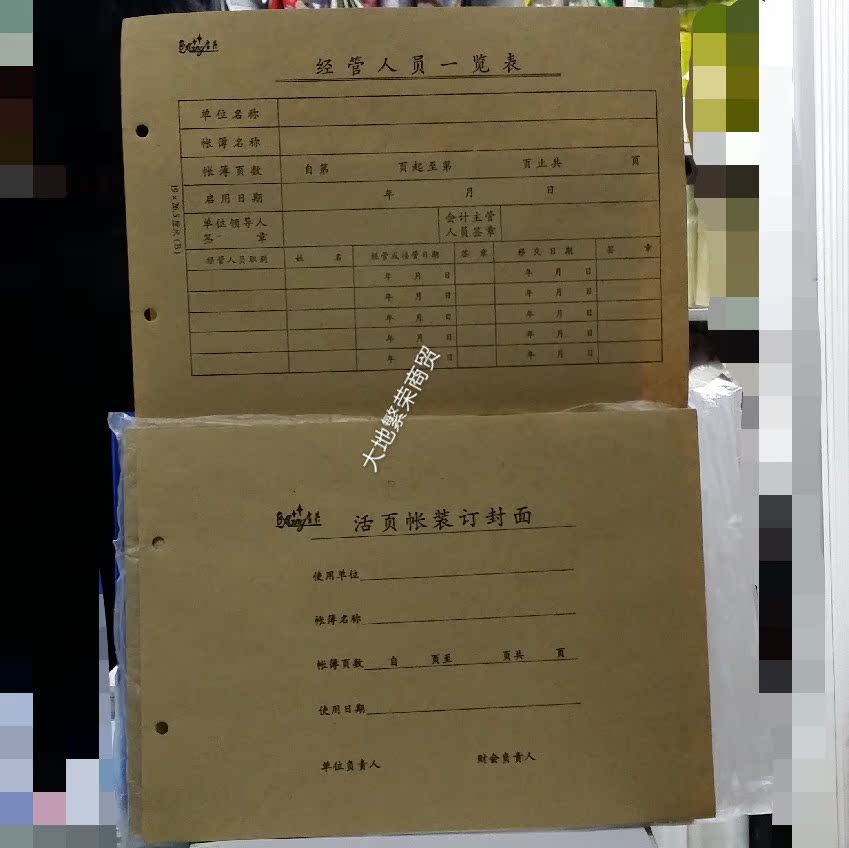 经管人员一览表
单位名称
帐簿名称
帐簿页数 自第 页起至第 页止共 页
启用日期 年 月 日
单位领导人签章 会计主管人员签章
经管人员职别 姓名 经管或接管日期 签章 移交日期 签章
年 月 日 年 月 日
年 月 日 年 月 日
年 月 日 年 月 日
年 月 日 年 月 日
年 月 日 年 月 日
大地繁荣商贸
活页帐装订封面
使用单位
帐簿名称
帐簿页数 自 页至 页共 页
使用日期
单位负责人 财会负责人